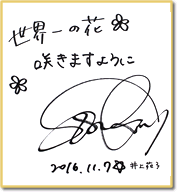 世界一の花
咲きますように
2016.11.7 井上苑子